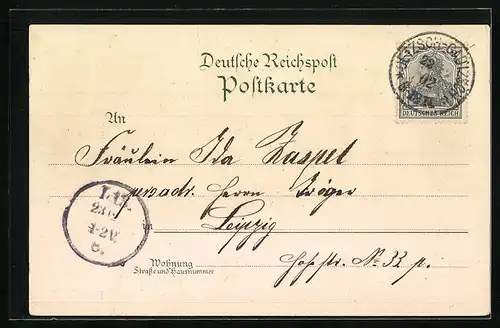 Deutsche Reichspost
Postkarte
DEUTSCHES REICH
An
Fräulein Ida Zaspel
per adr. Herrn
in Leipzig
Wohnung
Straße und Hausnummer
Hohestr. No 32 p.